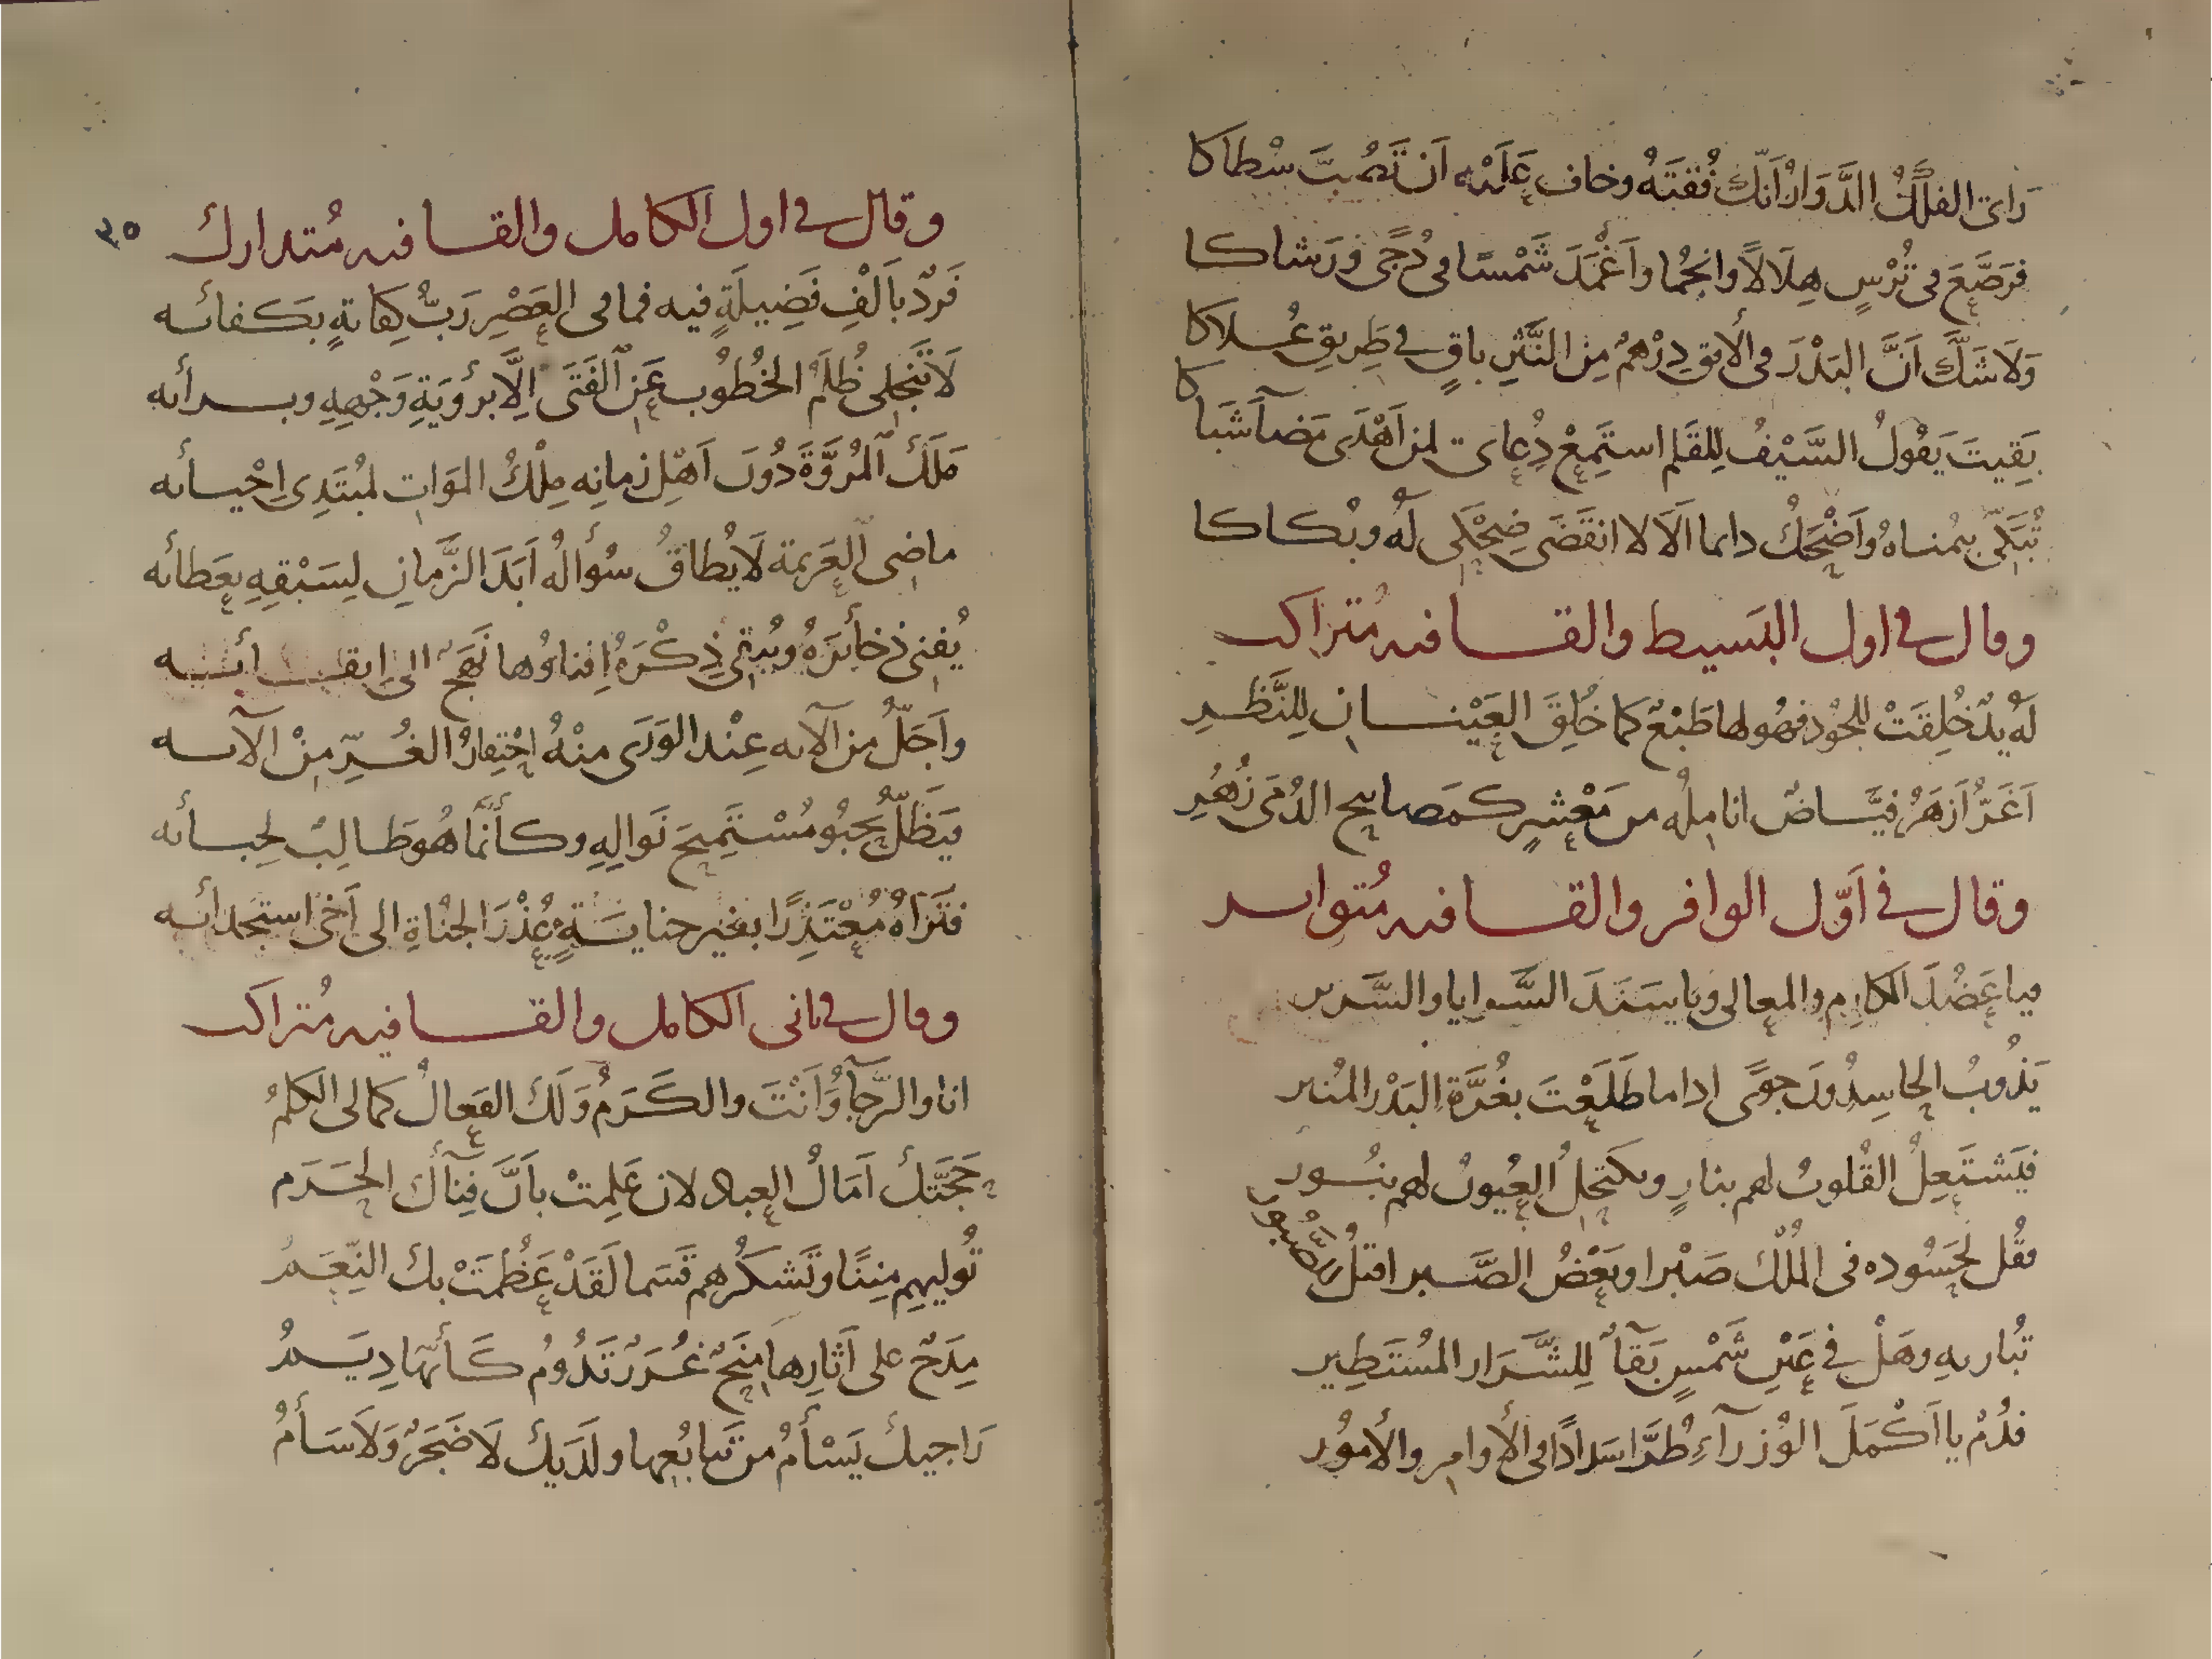 رَاى الفلَكُ الدَّوَارُ انَّكَ فُقتَهُ وخاف عَلَيْه اَن تَصُبَّ سُطاكا
فرَصَّعَ فى تُرْسٍ هِلَالاً وانجُما واَغْمَدَ شَمْسًا فى دُجًى ورَشاكا
وَلَاشَكَّ اَنَّ البَدْرَ فى الأفق دِرْهمٌ مِنَ النَّثرِ باقٍ فى طَرِيقِ عُلاكا
بَقِيتَ يَقُولُ السَّيْفُ لِلقَلم استَمِعْ دُعاى لمن اَهْدَى مَضآشَباكا
تُبَكّى بيُمناهُ وَاَضْحَكُ دايما اَلَا لا انقَضَى ضِحْكِى لَهُ وبُكاكا
وقال فى اول البَسيط والقافيه مُتراكب
لَهُ يدٌ خُلِقَتْ للجُود فهو لها طَبْعٌ كما خُلِقَ العَيْنان لِلنَّظَرِ
اَغَرُّ اَزهَرُ فيَّاضٌ اناملُه من مَعْشرٍ كمَصابيح الدُجَى زُهُرِ
وقال فى اَوّل الوافر والقافيه مُتواتر
فيا عَضُدَ المكارِم والمعالى ويا سَنَدَ السَّرايا والسَّرير
يَذُوبُ الحاسِدُونَ جوًى اذا ما طَلَعْتَ بغُرَّةِ البَدْر المُنير
فيَشتَعِلُ القُلوبُ لهم بنارٍ وتكتحِلُ العُيونُ لهم بنُور
فقُل لحَسُوده فى المُلْك صَبْرا وبَعْضُ الصَّبر اقتلُ للصَّبُور
تُباريهِ وهَلْ فى عَيْنِ شَمْسٍ بَقآءٌ لِلشَّرَار المُستَطِير
فدُمْ يا اَكْمَلَ الوُزرآءِ طُرَّا سَدادًا فى الأوامِر والأمُور
٣٥
وقال فى اول الكامل والقافيه مُتدارك
فَردٌ بأَلْفِ فَضِيلَةٍ فيه فما فى العَصْرِ رَبُّ كِفايةٍ بكفائه
لَا تَنجلِى ظُلَمُ الخُطُوب عَنِ الفَتَى اِلَّا برؤيَةِ وَجْهِهِ وبرأيه
مَلَكَ المُرُوَّةَ دُونَ اَهْلِ زمانِه مِلْكُ المَوَات لمُبْتَدِى اِحْيائه
ماضِى العَزيمة لَا يُطاقُ سُؤالُه اَبَدَ الزَّمانِ لِسَبْقِهِ بعَطائه
يُفنِى ذخائرَهُ ويُبقى ذِكْرَهُ اِفناؤُها نَهْجٌ الى ابقائه
واَجَلُّ من آلآئه عِنْد الوَرَى منْهُ احْتِقارُ الغُرِّ مِنْ آلآئه
يَظَلُّ يَحْبُو مُسْتَمِيحَ نَوالِهِ وكأنَّما هُو طالِبٌ لحِبائه
فتَرَاهُ مُعْتَذِرًا بغير جنايَةٍ عُذْرَ الجُناةِ الى اَخى استجدائه
وقال فى ثانى الكامل والقافيه مُتراكب
انا والرَّجآءُ وَاَنْتَ والكَرَمُ وَلَكَ الفَعالُ كما لى الكلمُ
حَجَّتكَ اَمَالُ العِباد لان عَلِمتْ بأنَّ فِنآءَكَ الحَرَم
تُوليهِم مِنَنًا وتَشكُرُهم قَسَما لقَدْ عَظُمَتْ بك النِّعَمُ
مِدَحٌ على آثارِها مِنَحٌ غُرَرٌ تَدُومُ كَأنّها دِيَمُ
رَاجيكَ يَسْأَمُ من تتابُعِها ولَدَيكَ لَا ضَجَرٌ وَلَا سَأمُ